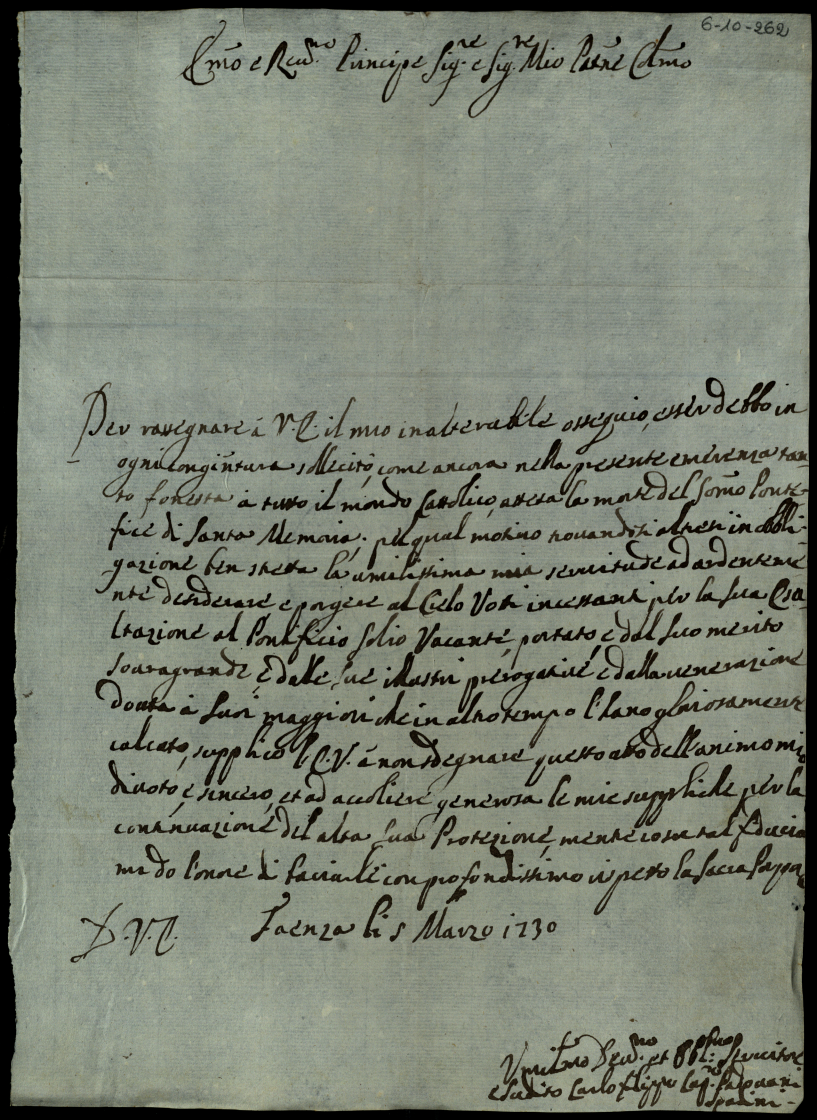 6-10-262
Emo e Reu.mo Principe Sig.re e Sig.re Mio Pãne Colmo
Per rassegnare à V.E. il mio inalterabile ossequio, esser debbo in
ogni congiuntura sollecito, come ancora nella presente emerenza tan-
to fonesta à tutto il mondo Cattolico, attesa la morte del Somo Ponte-
fice di Santa Memoria; pel qual motiuo trouandosi altresi in obbli-
gazione ben stretta la umilissima mia seruitude ad ardenteme
nte desiderare e porgere al Cielo Voti incessanti per la sua Esa-
ltazione al Pontificio Solio Vacante, portato, e dal suo merito
souragrande, e dalle sue illustri prerogatiue, e dalla uenerazione
douta à suoi maggiori che in altro tempo l'hano gloriosamente
calcato, supplico l'E.V. à non sdegnare questo atto dell'animo mio
diuoto, e sincero, et ad accoliere generosa le mie suppliche per la
continuazione del alta sua Protezione, mente con tal fiducia
mi do l'onore di baciarle con profondissimo rispetto la sacra Porpora
D.V.E. Faenza li 5 Marzo 1730
Vmilmo Deu.mo et Obbl.mo Seruitore
e Sudito Carlo Filippo